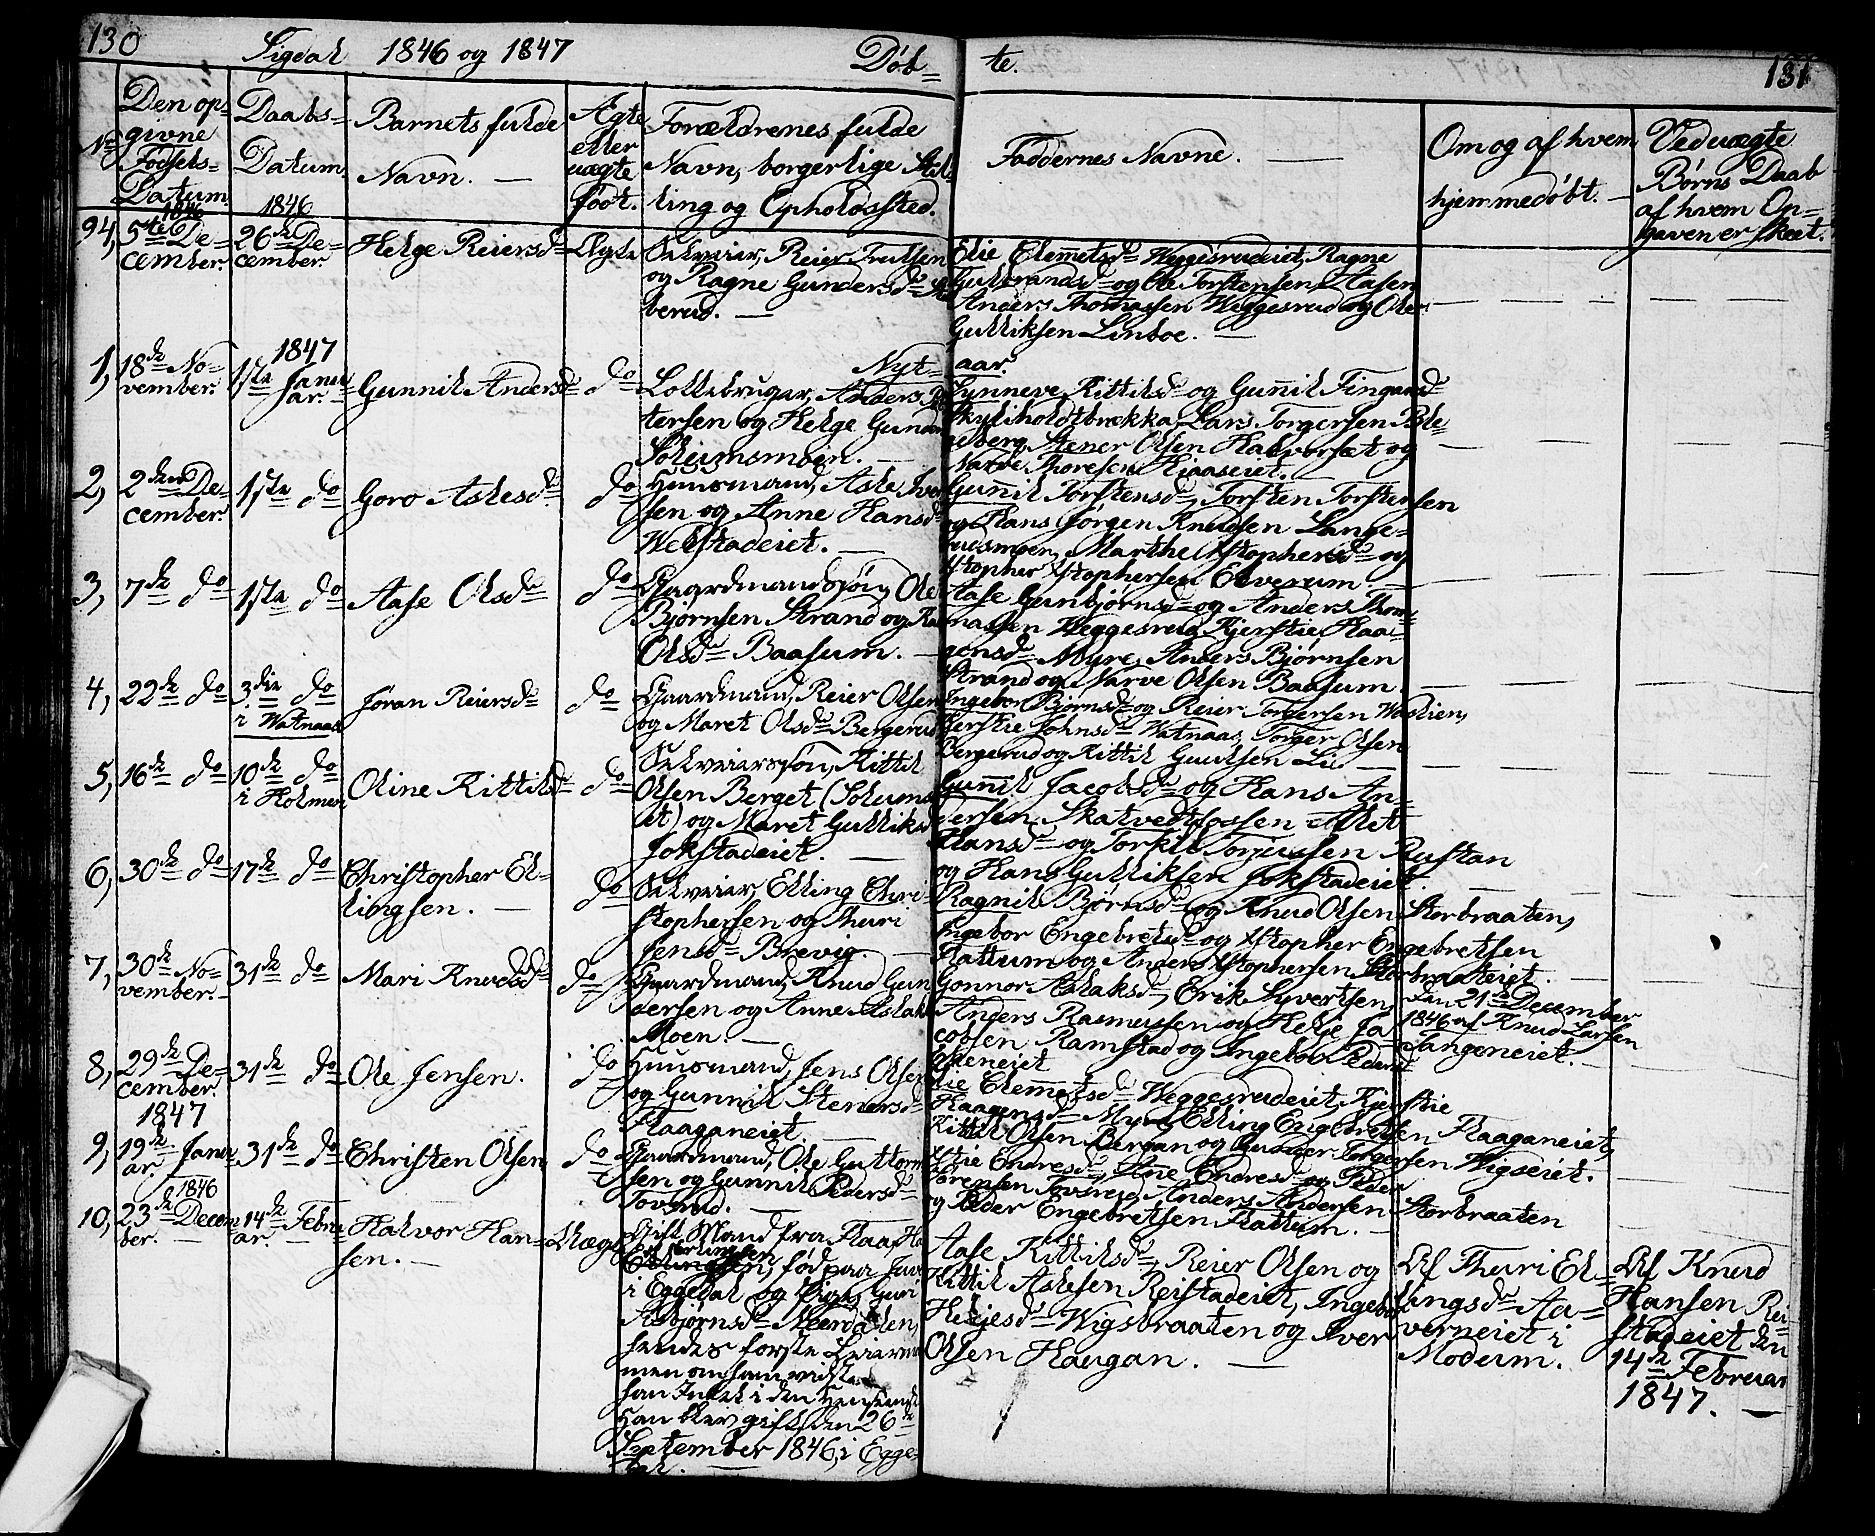 130
Sigdal 1846 og 1847
Døb=
te.
131
No
Den op=
givne
Fødsels=
Datum.
Daabs=
Datum.
Barnets fulde
Navn. —
Ægte
eller
uægte
født.
Forældrenes fulde
Navn, borgerlige Stil=
ling og Opholdssted.
Faddernes Navne. —
Om og af hvem
hjemmedøbt. —
Ved uægte
Børns Daab
af hvem Op=
gaven er skeet.
1846
1846
94, 5te De=
cember.
26de De=
cember.
Helge Reiersd=
Ægte
Selveier, Reier Trulsen
og Ragne Gundersd=
berud. —
Elie Clemetsd= Weggesrudeiet, Ragne
Gulbrandsd= og Ole Torstensen Aasen
Anders Thomassen Weggesrud og Ole
Gulliksen Linboe. —
1847
Nyt=
aar.
1, 18de No=
vember.
1ste Janu=
ar.
Gunnil Andersd=
do
Lottebruger, Anders Pe
tersen og Helge Gunder
Soleimsmoen. —
Synneve Kittilsd= og Gunil Fingarsd=
Skyliholdtbrækka, Lars Torgersen Ble=
geberg, Stener Olsen Halvorset og
Narve Thoresen Kiaaseiet. —
2, 2den De=
cember.
1ste do
Goro Aslesd=
do
Huusmand, Asle Iver
sen og Anne Hansd=
Welstadeiet. —
Gunil Torstensd=, Torsten Torstensen
og Hans Jørgen Knudsen Lange=
rudsmoen, Marthe Xstophersd= og
Xstopher Xstophersen Elverum —
3, 7de do
1ste do
Aase Olsd=
do
Gaardmandssøn, Ole
Bjørnsen Strand og
Olsd= Baasum. —
Aase Gunbjørnsd= og Anders Thom=
massen Weggesrud, Kjerstie Haa=
gensd= Myre, Anders Bjørnsen
Strand og Narve Olsen Baasum.
4, 22de do
3die do
i Watnaas
Jøran Reiersd=
do
Gaardmand, Reier Olsen
og Maret Olsd= Bergerud
Ingebor Bjørnsd= og Reier Torgersen
Kjerstie Johnsd= Watnaas, Torger Olsen
Bergerud og Kittil Guulsen Li —
5, 16de do
10de do
i Holmen
Oline Kittilsd=
do
Selveierssøn, Kittil
Olsen Berget (Soleims
et) og Maret Gulliksd
Jokstadeiet. —
Gunil Jacobsd= og Hans An=
dersen Skatvedtfossen Astet
Hansd= og Torkil Torjussen Rustan
og Hans Gulliksen Jokstadeiet.
6, 30de do
17de do
Christopher El=
lingsen. —
do
Selveier, Elling Chri=
stophersen og Thuri
Jensd= Brevig. —
Ragnil Bjørnsd= og Knud Olsen Storbraaten,
Ingebor Engebretsd= og Xstopher Engebretsen
Kattum og Anders Xstophersen Storbraateiet. —
7, 30de No=
vember. —
31de do
Mari Knudsd=
do
Gaardmand, Knud Gun
dersen og Anne Aslak
Moen. —
Gonnor Aslaksd=, Erik Syvertsen,
Anders Rasmussen og Helge Ja=
cobsen Ramstad og Ingebor Pedersd
Den 21de December
1846 af Knud Larsen
Tangeneiet. —
8, 29de De=
cember.
31de do
Ole Jensen.
do
Huusmand, Jens Olsen
og Gunnil Stenersd=
Haaganeiet.
Elie Clemetsd= Weggesrudeiet, Kjerstie
Haagensd= Myre, Elling Engebretsen Haaganeiet,
Kittil Olsen Bergan og Torgersen Wigseiet.
1847
9, 19de Janu=
ar.
31de do
Christen Olsen
do
Gaardmand, Ole Guttorm
sen og Gunnil Pedersd=
Tovsrud. —
Xstie Endresd=, Ane Endresd= og Peder
Sørensen Tovsrud, Anders Andersen Storbraaten
og Peder Engebretsen Kattum. —
1846
10, 23de Decem
ber. —
14de Febru
ar. —
Halvor Han=
sen. —
Uægte
Gift Mand fra Flaa, Ha
Erlingsen
Ellingsen, fød paa
i Eggedal og Pige, Guri
Asbjørnsd= Neerdalen,
hendes første Leierm
men om ham vidste
han Intet i den Henseende
Han blev gift den 26de
September 1846, i Egge=
dal. —
Aase Kittilsd=, Reier Olsen og
Kittil Aslesen Reistadeiet, Ingebor
Helgesd= Wigsbraaten og Iver
Olsen Haugan. —
Af Thuri El=
lingsd= Aa=
verneiet i
Modum.
Af Knud
Hansen Rei=
stadeiet den
14de Februar
1847. —